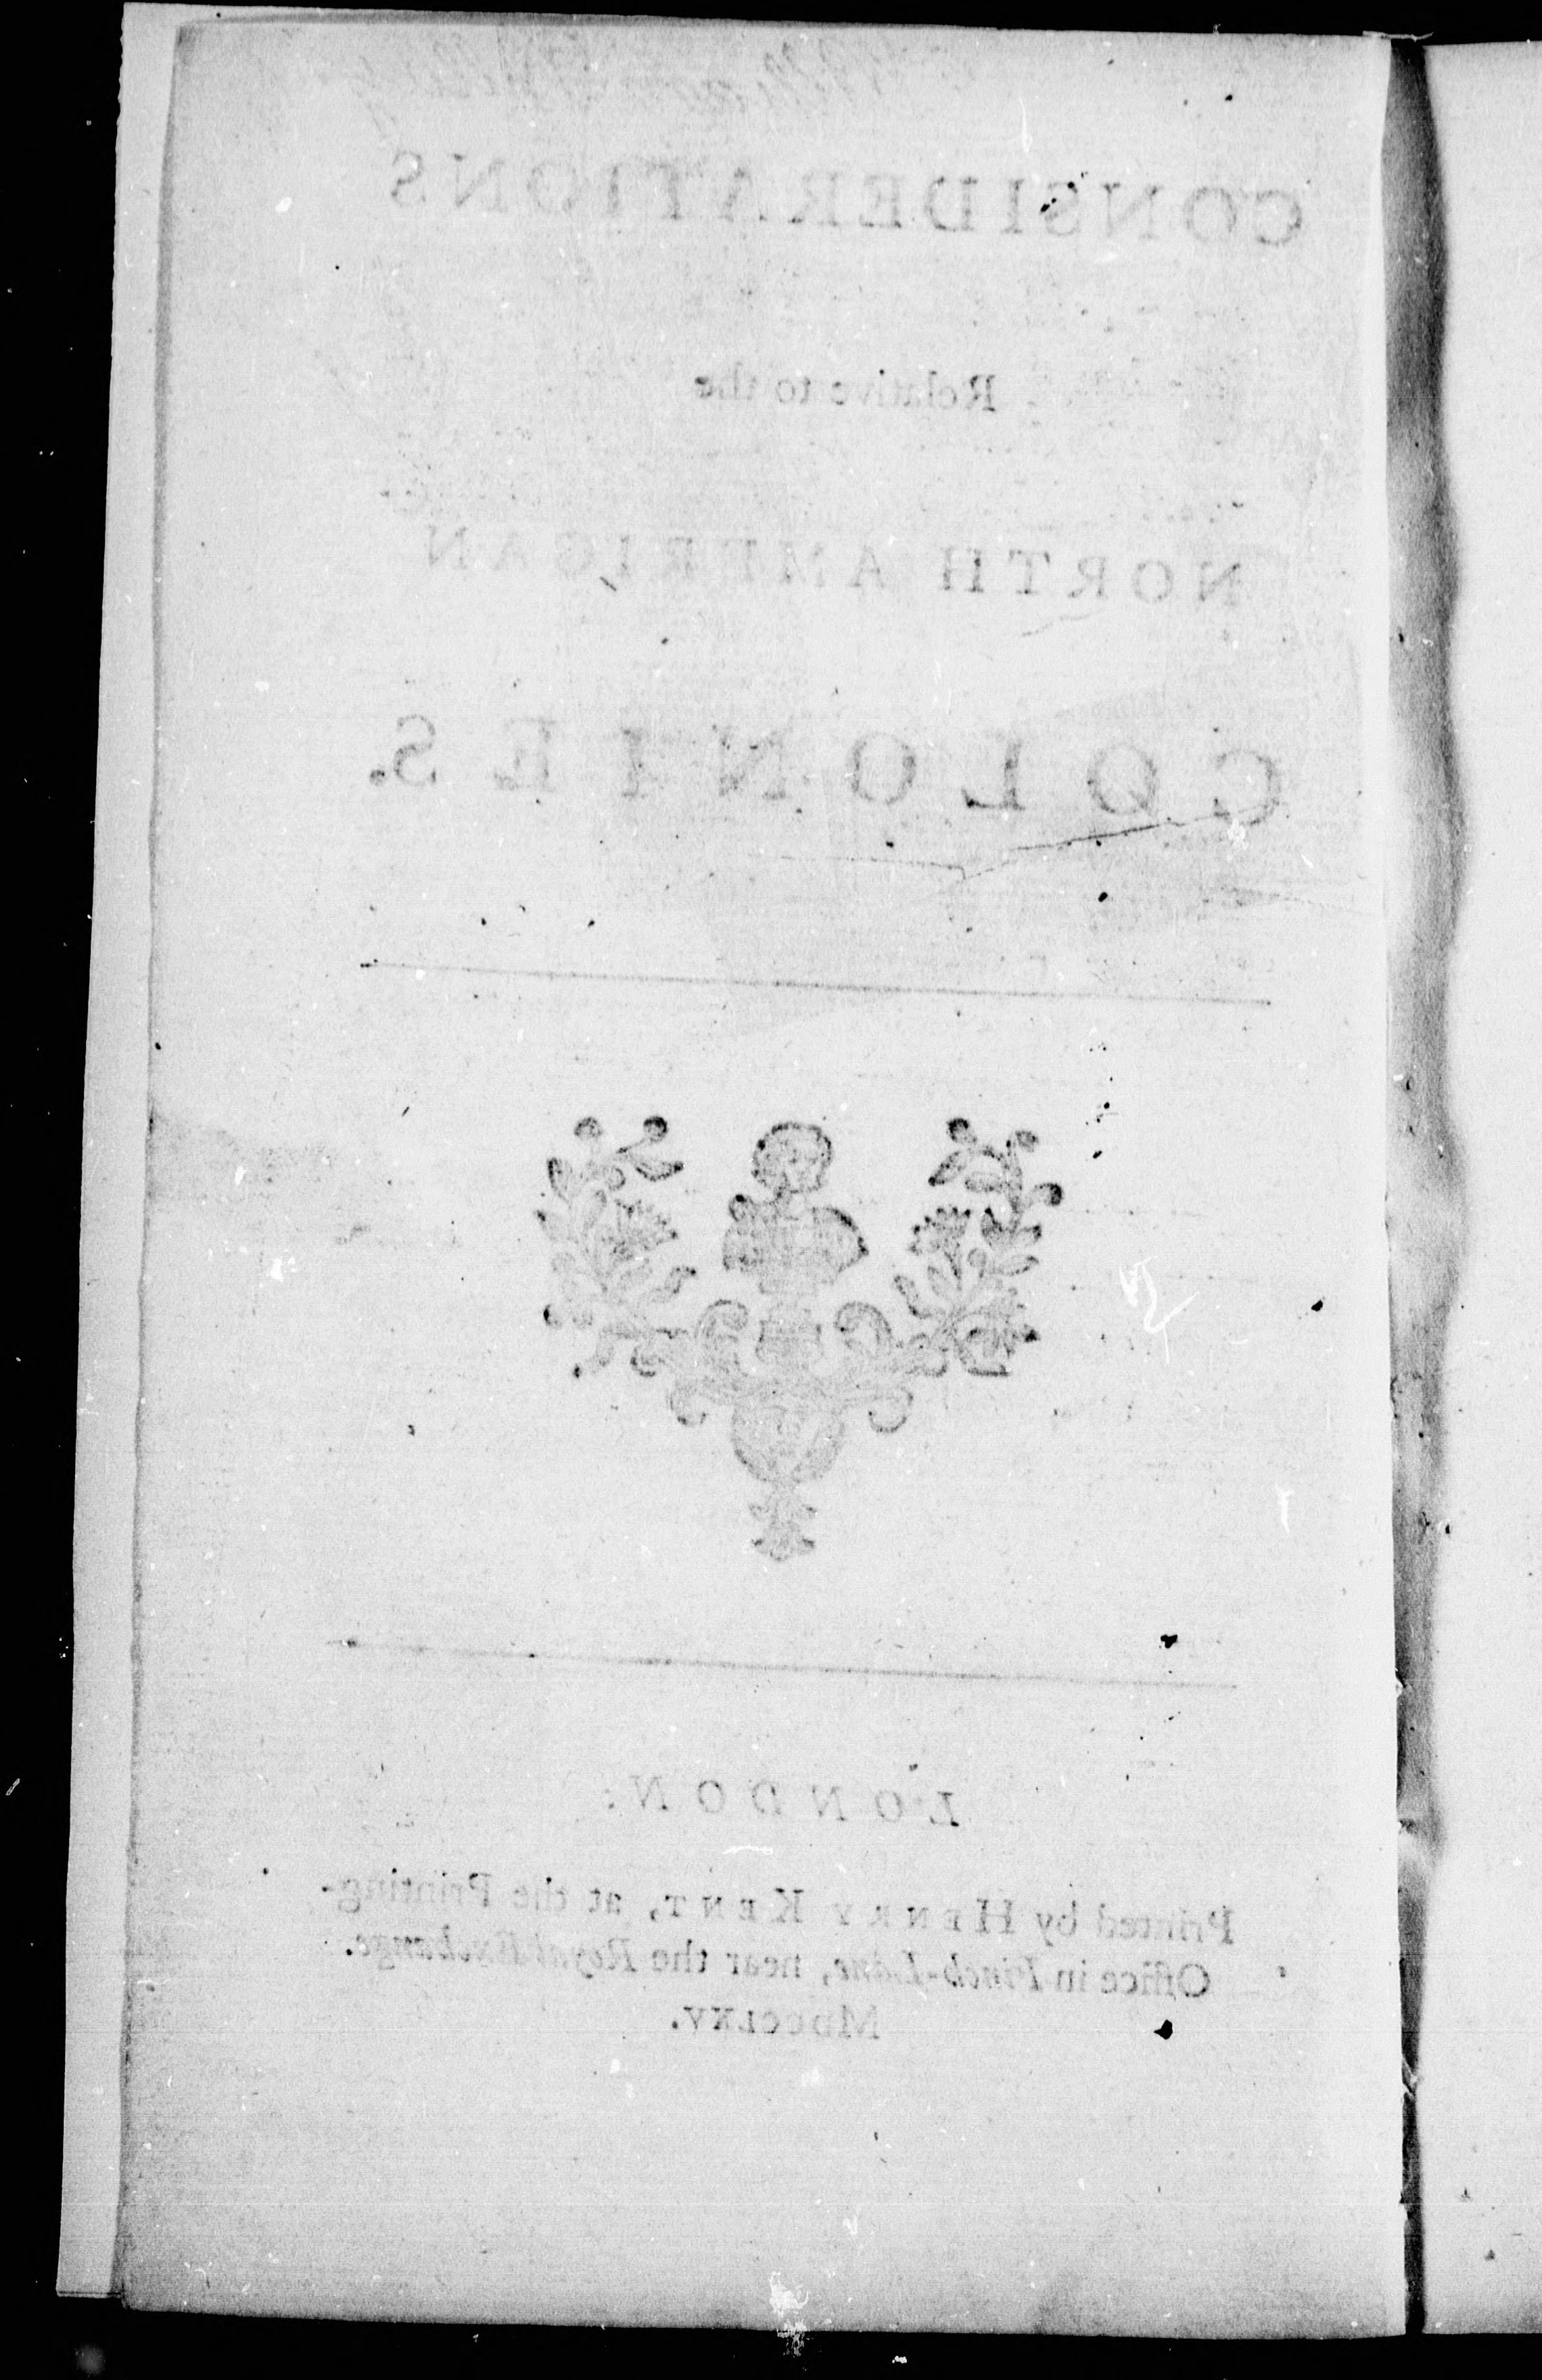 CONSIDERATIONS
Relative to the
NORTH AMERICAN
COLONIES.
LONDON:
Printed by HENRY KENT, at the Printing-
Office in Finch-Lane, near the Royal Exchange.
MDCCLXV.